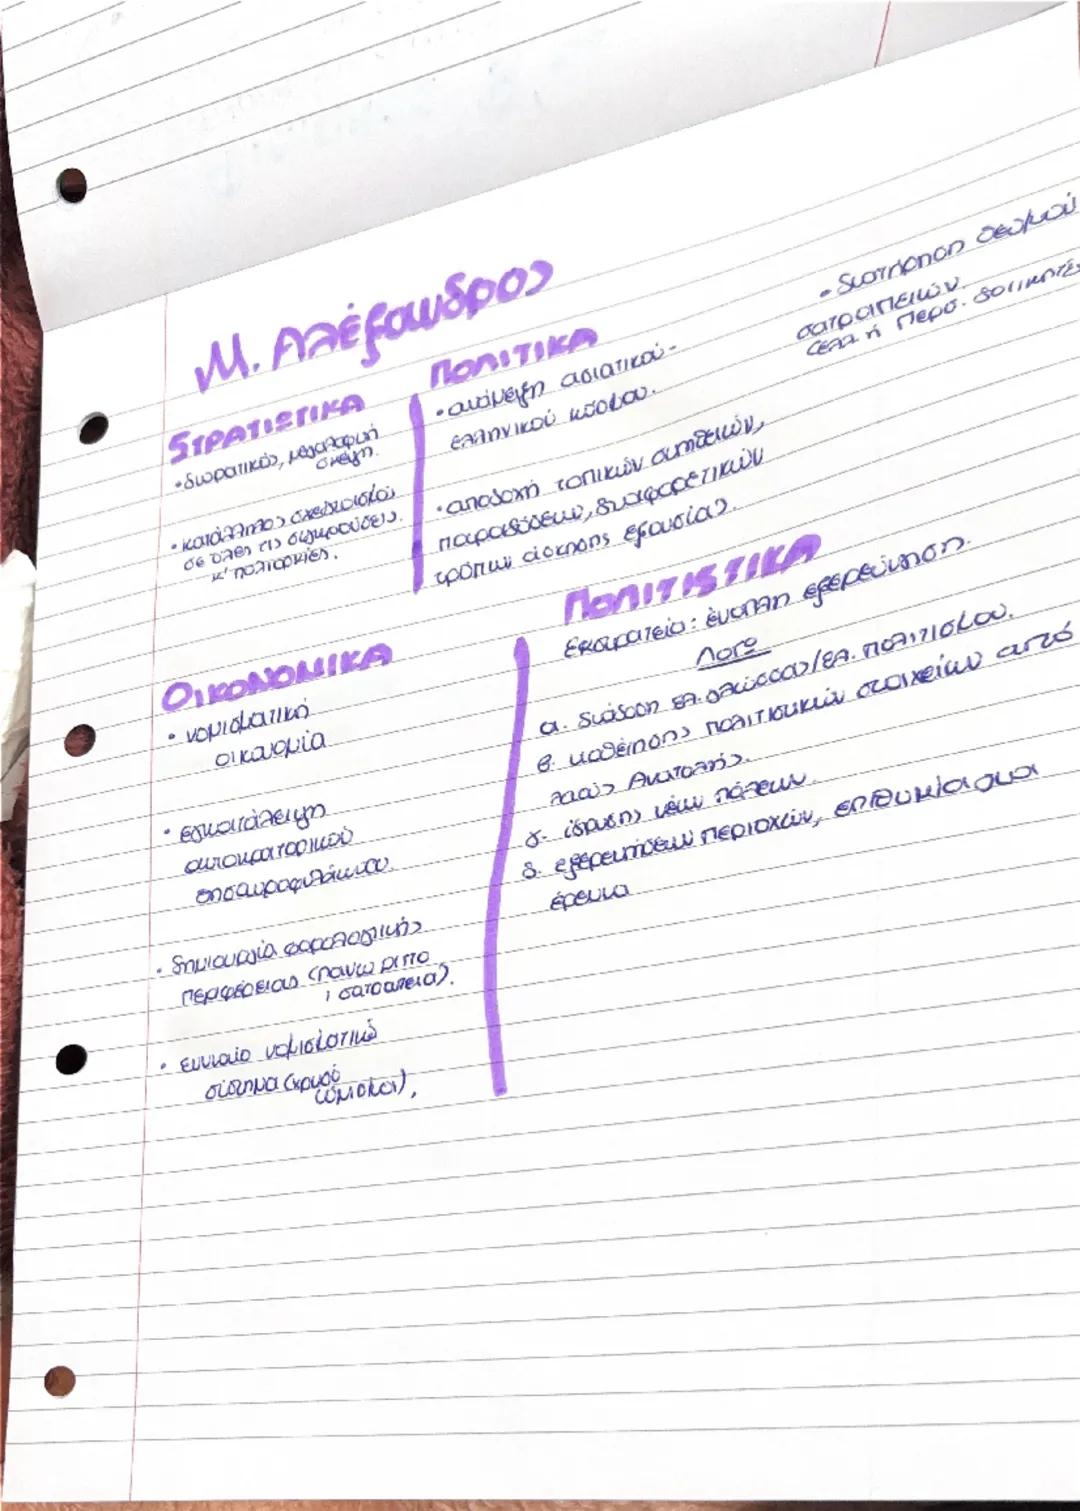 Μ. Αλέξανδρος
ΣΤΡΑΤΙΩΤΙΚΑ
• διορατικός, μεγαλόφωνη
σκέψη.
• κατάλληλος σχεδιασμός
σε όλες τις συγκρούσεις
κ' πολιορκίες.
ΠΟΛΙΤΙΚΑ
• ανάμειξη ασιατικού-
ελληνικού κόσμου.
• αποδοχή τοπικών συνηθειών,
παραδόσεων, διαφορετικών
τρόπων άσκησης εξουσίας.
• διατήρηση θεσμού
σατραπειών
(ελλ ή περσ. διοικητές
ΟΙΚΟΝΟΜΙΚΑ
• νομισματική
οικονομία
• εγκατάλειψη
αυτοκρατορικού
θησαυροφυλάκιου.
• δημιουργία φορολογικής
περιφέρειας (πάνω από
1 σατραπεία).
• ενιαίο νομισματικό
σύστημα (χρυσό
νόμισμα).
ΠΟΛΙΤΙΣΤΙΚΑ
Εκστρατεία: ένοπλη εξερεύνηση.
Λόγο
α. διάδοση ελ. γλώσσας/ελ. πολιτισμού.
β. υιοθέτησης πολιτιστικών στοιχείων από
λαούς Ανατολής.
γ. ίδρυσης νέων πόλεων.
δ. εξερευνήσεων περιοχών, επιθυμία για
έρευνα